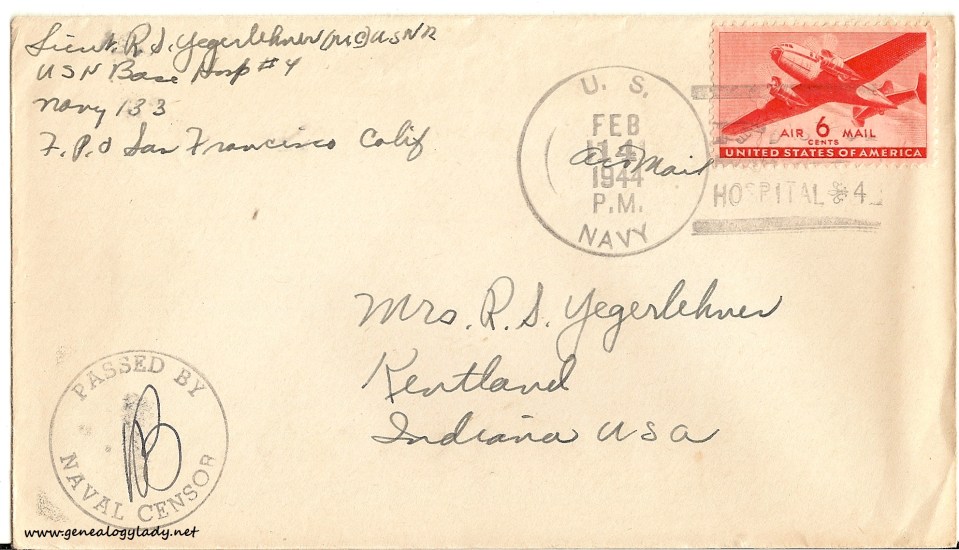 Lieut. R. S. Yegerlehner (MC) USNR
USN Base Hosp #4
Navy 133
F.P.O San Francisco Calif
U. S.
FEB
14
1944
P.M.
NAVY
Air Mail
AIR 6 MAIL
CENTS
UNITED STATES OF AMERICA
HOSPITAL 4
Mrs. R. S. Yegerlehner
Kentland
Indiana USA
PASSED BY
B
NAVAL CENSOR
www.genealogylady.net